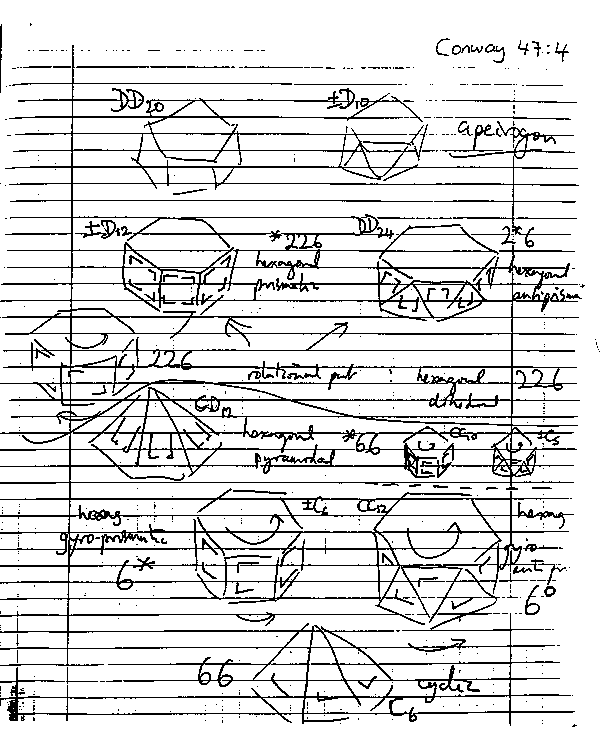 Conway 47:4
DD20
±D10
apeirogon
±D12
*226
hexagonal
prismatic
DD24
2*6
hexagonal
antiprisma
226
rotational part
hexagonal
dihedral
226
CD12
hexagonal
pyramidal
*66
CC10
±C5
hexag
gyro-prismatic
6*
±C6
CC12
hexag
gyro
antipr
6°
66
cyclic
C6